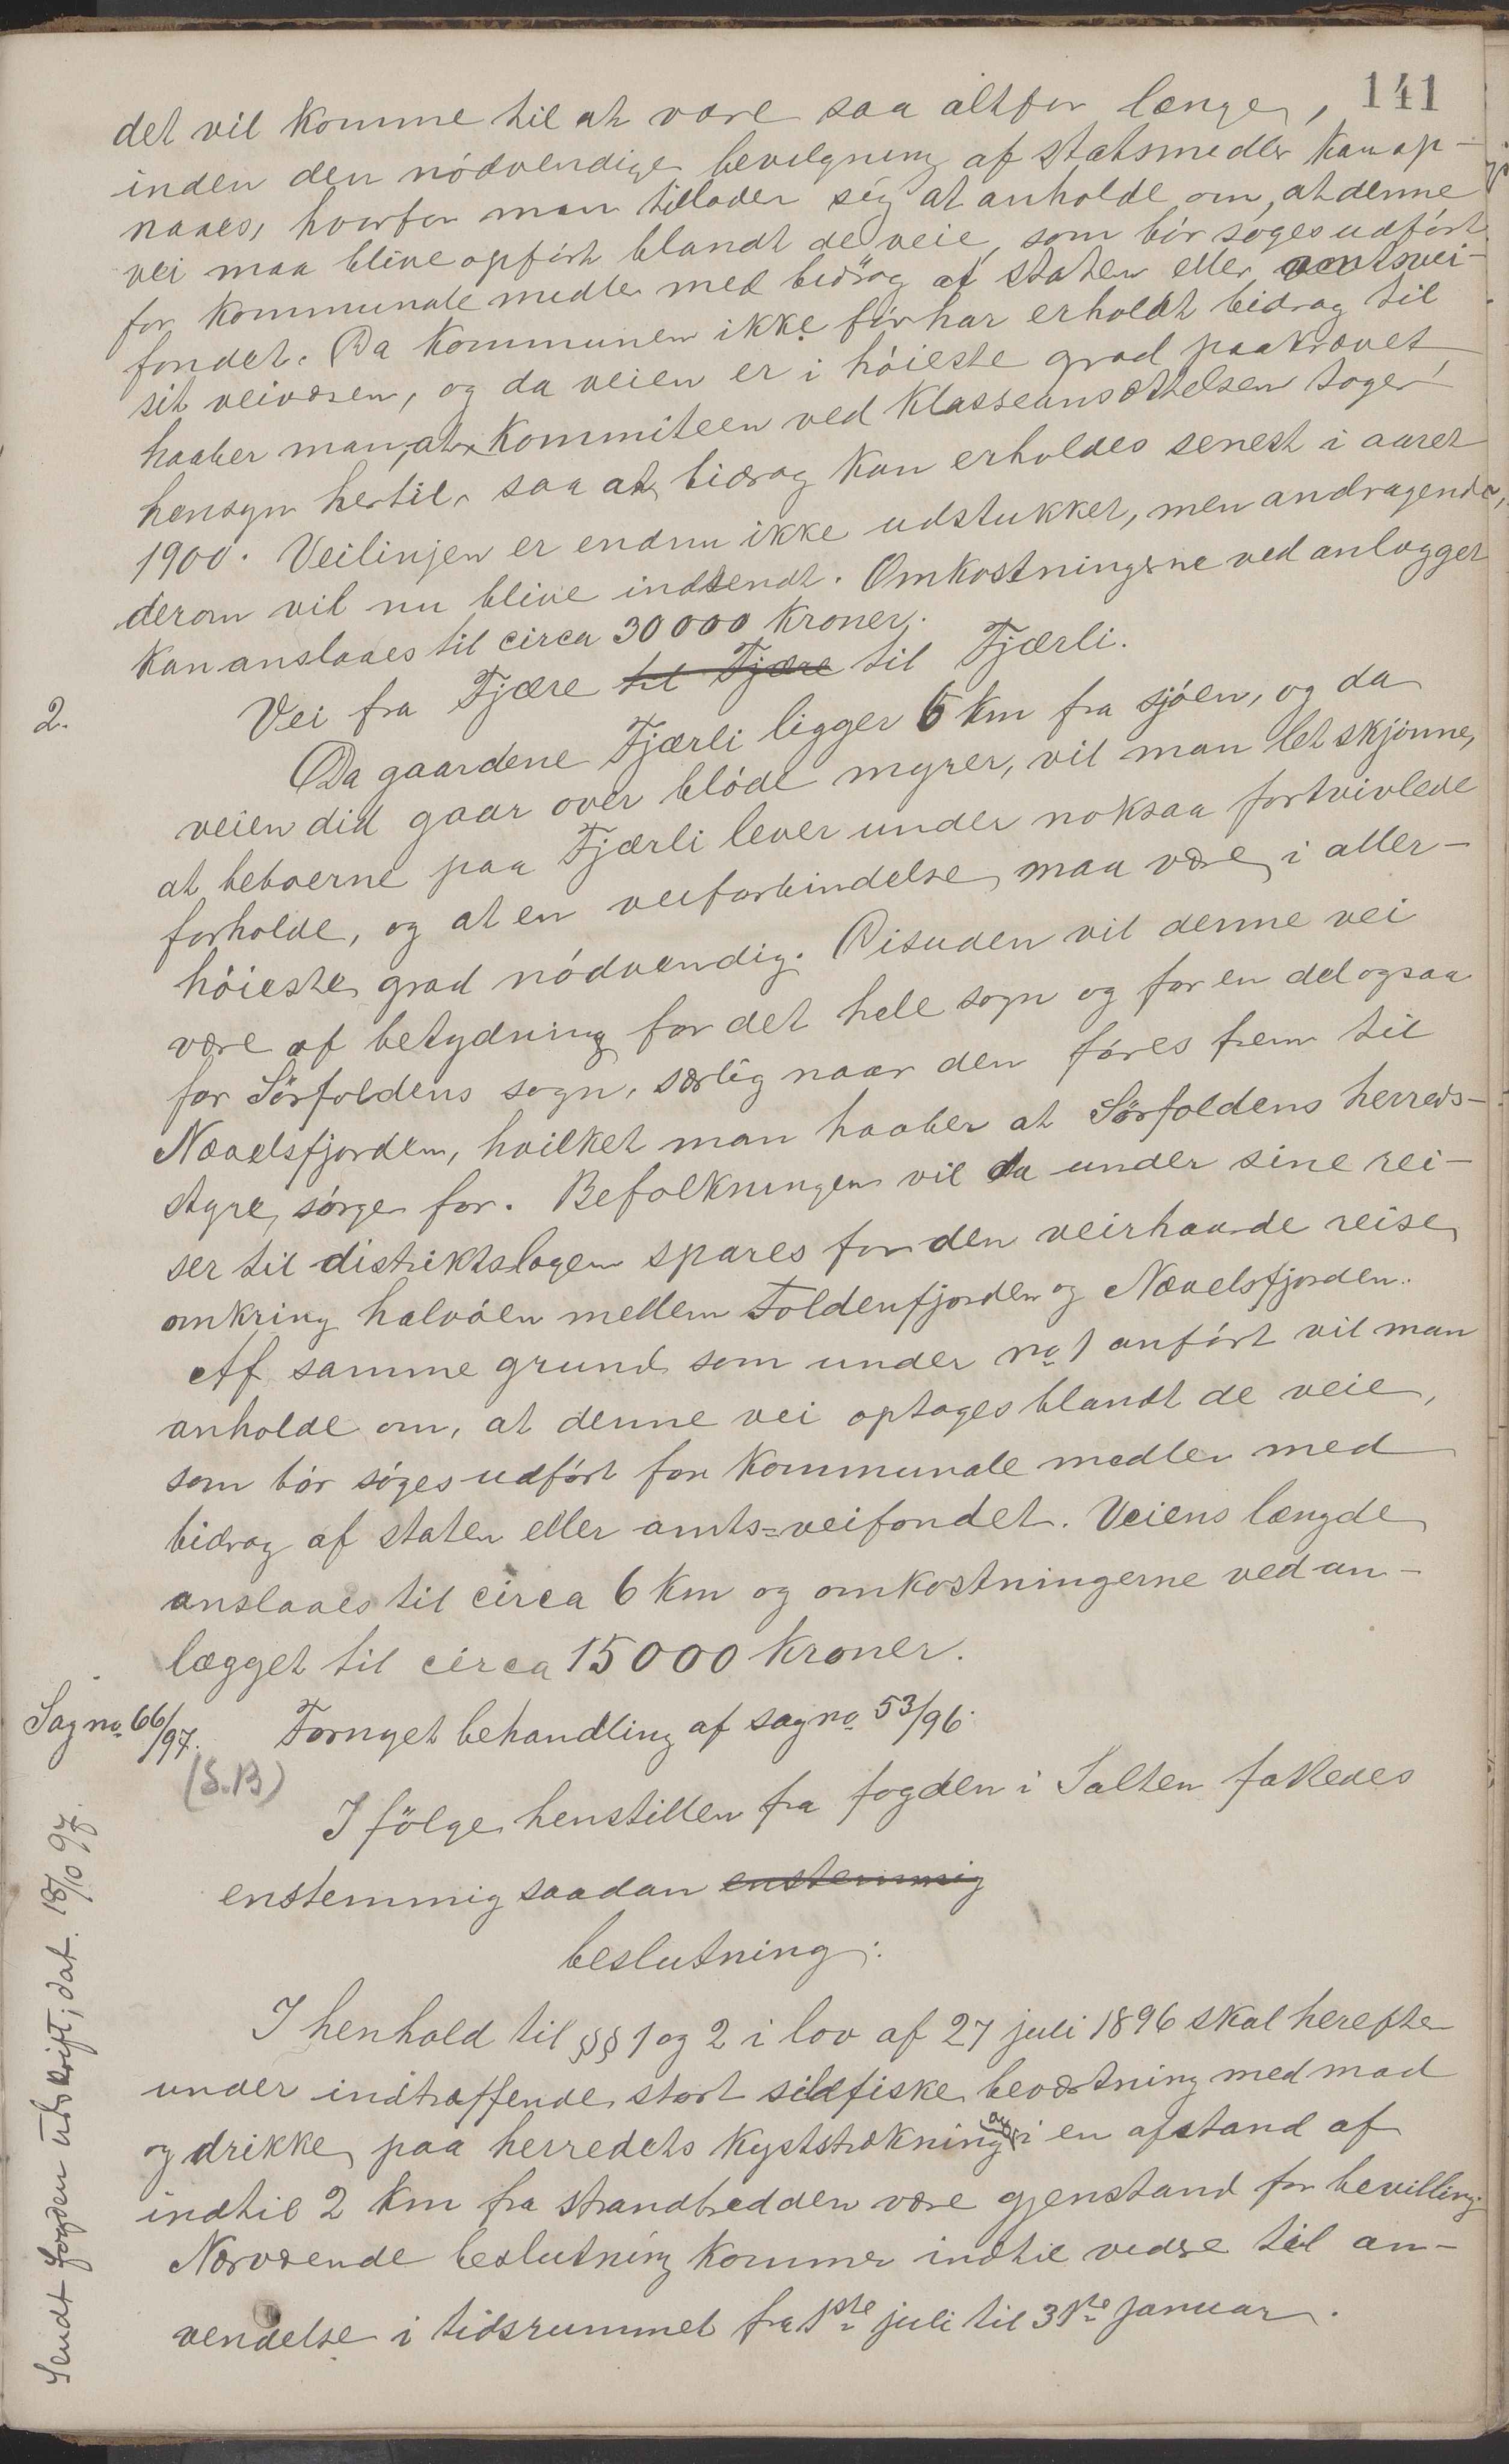 141
det vil komme til at vare saa altfor længe,
inden den nødvendige bevilgning af statsmedler kan op-
naaes, hvorfor man tillader sig at anholde om, at denne
vei maa blive opført blandt de veie, som bør søges udført
for kommunale midler med bidrag af staten eller amtsvei-
fondet. Da kommunen ikke før har erholdt bidrag til
sit veivæsen, og da veien er i høieste grad paakrævet,
haaber man, at kommiteen ved klasseansættelsen tager
hensyn hertil, saa at bidrag kan erholdes senest i aaret
1900. Veilinjen er endnu ikke udstukket, men andragende,
derom vil nu blive indsendt. Omkostningerne ved anlægget
kan anslaaes til circa 30000 kroner.
2. Vei fra Fjære til Fjære til Fjærli.
Da gaardene Fjærli ligger 6 km fra sjøen, og da
veien did gaar over bløde myrer, vil man let skjønne,
at beboerne paa Fjærli lever under noksaa fortvivlede
forholde, og at en veiforbindelse maa være i aller-
høieste grad nødvendig. Disuden vil denne vei
være af betydning for det hele sogn og for en del ogsaa
for Sørfoldens sogn, særlig naar den føres frem til
Nævelsfjorden, hvilket man haaber at Sørfoldens herreds-
styre sørger for. Befolkningen vil da under sine rei-
ser til distriktslægen spares for den veirhaarde reise
omkring halvøen mellem Foldenfjorden og Nævelsfjorden.
Af samme grund som under no 1 anført vil man
anholde om, at denne vei optages blandt de veie,
som bør søges udført for kommunale medler med
bidrag af staten eller amts=veifondet. Veiens længde
anslaaes til circa 6 km og omkostningerne ved an-
lægget til circa 15000 kroner.
Sag no. 66/97. Fornyet behandling af sag no. 53/96.
(S.B)
I følge henstillen fra fogden i Salten fattedes
enstemmig saadan enstemmig
beslutning:
I henhold til §§ 1 og 2 i lov af 27 juli 1896 skal herefter
under indtræffende stort sildfiske beværtning med mad
og drikke paa herredets kyststrækning og i en afstand af
indtil 2 km fra strandbredden være gjenstand for bevilling
Nærværende beslutning kommer indtil videre til an-
vendelse i tidsrummet fra 1ste juli til 31te januar.
Sendt fogden udskrift, dat. 18/10 97.